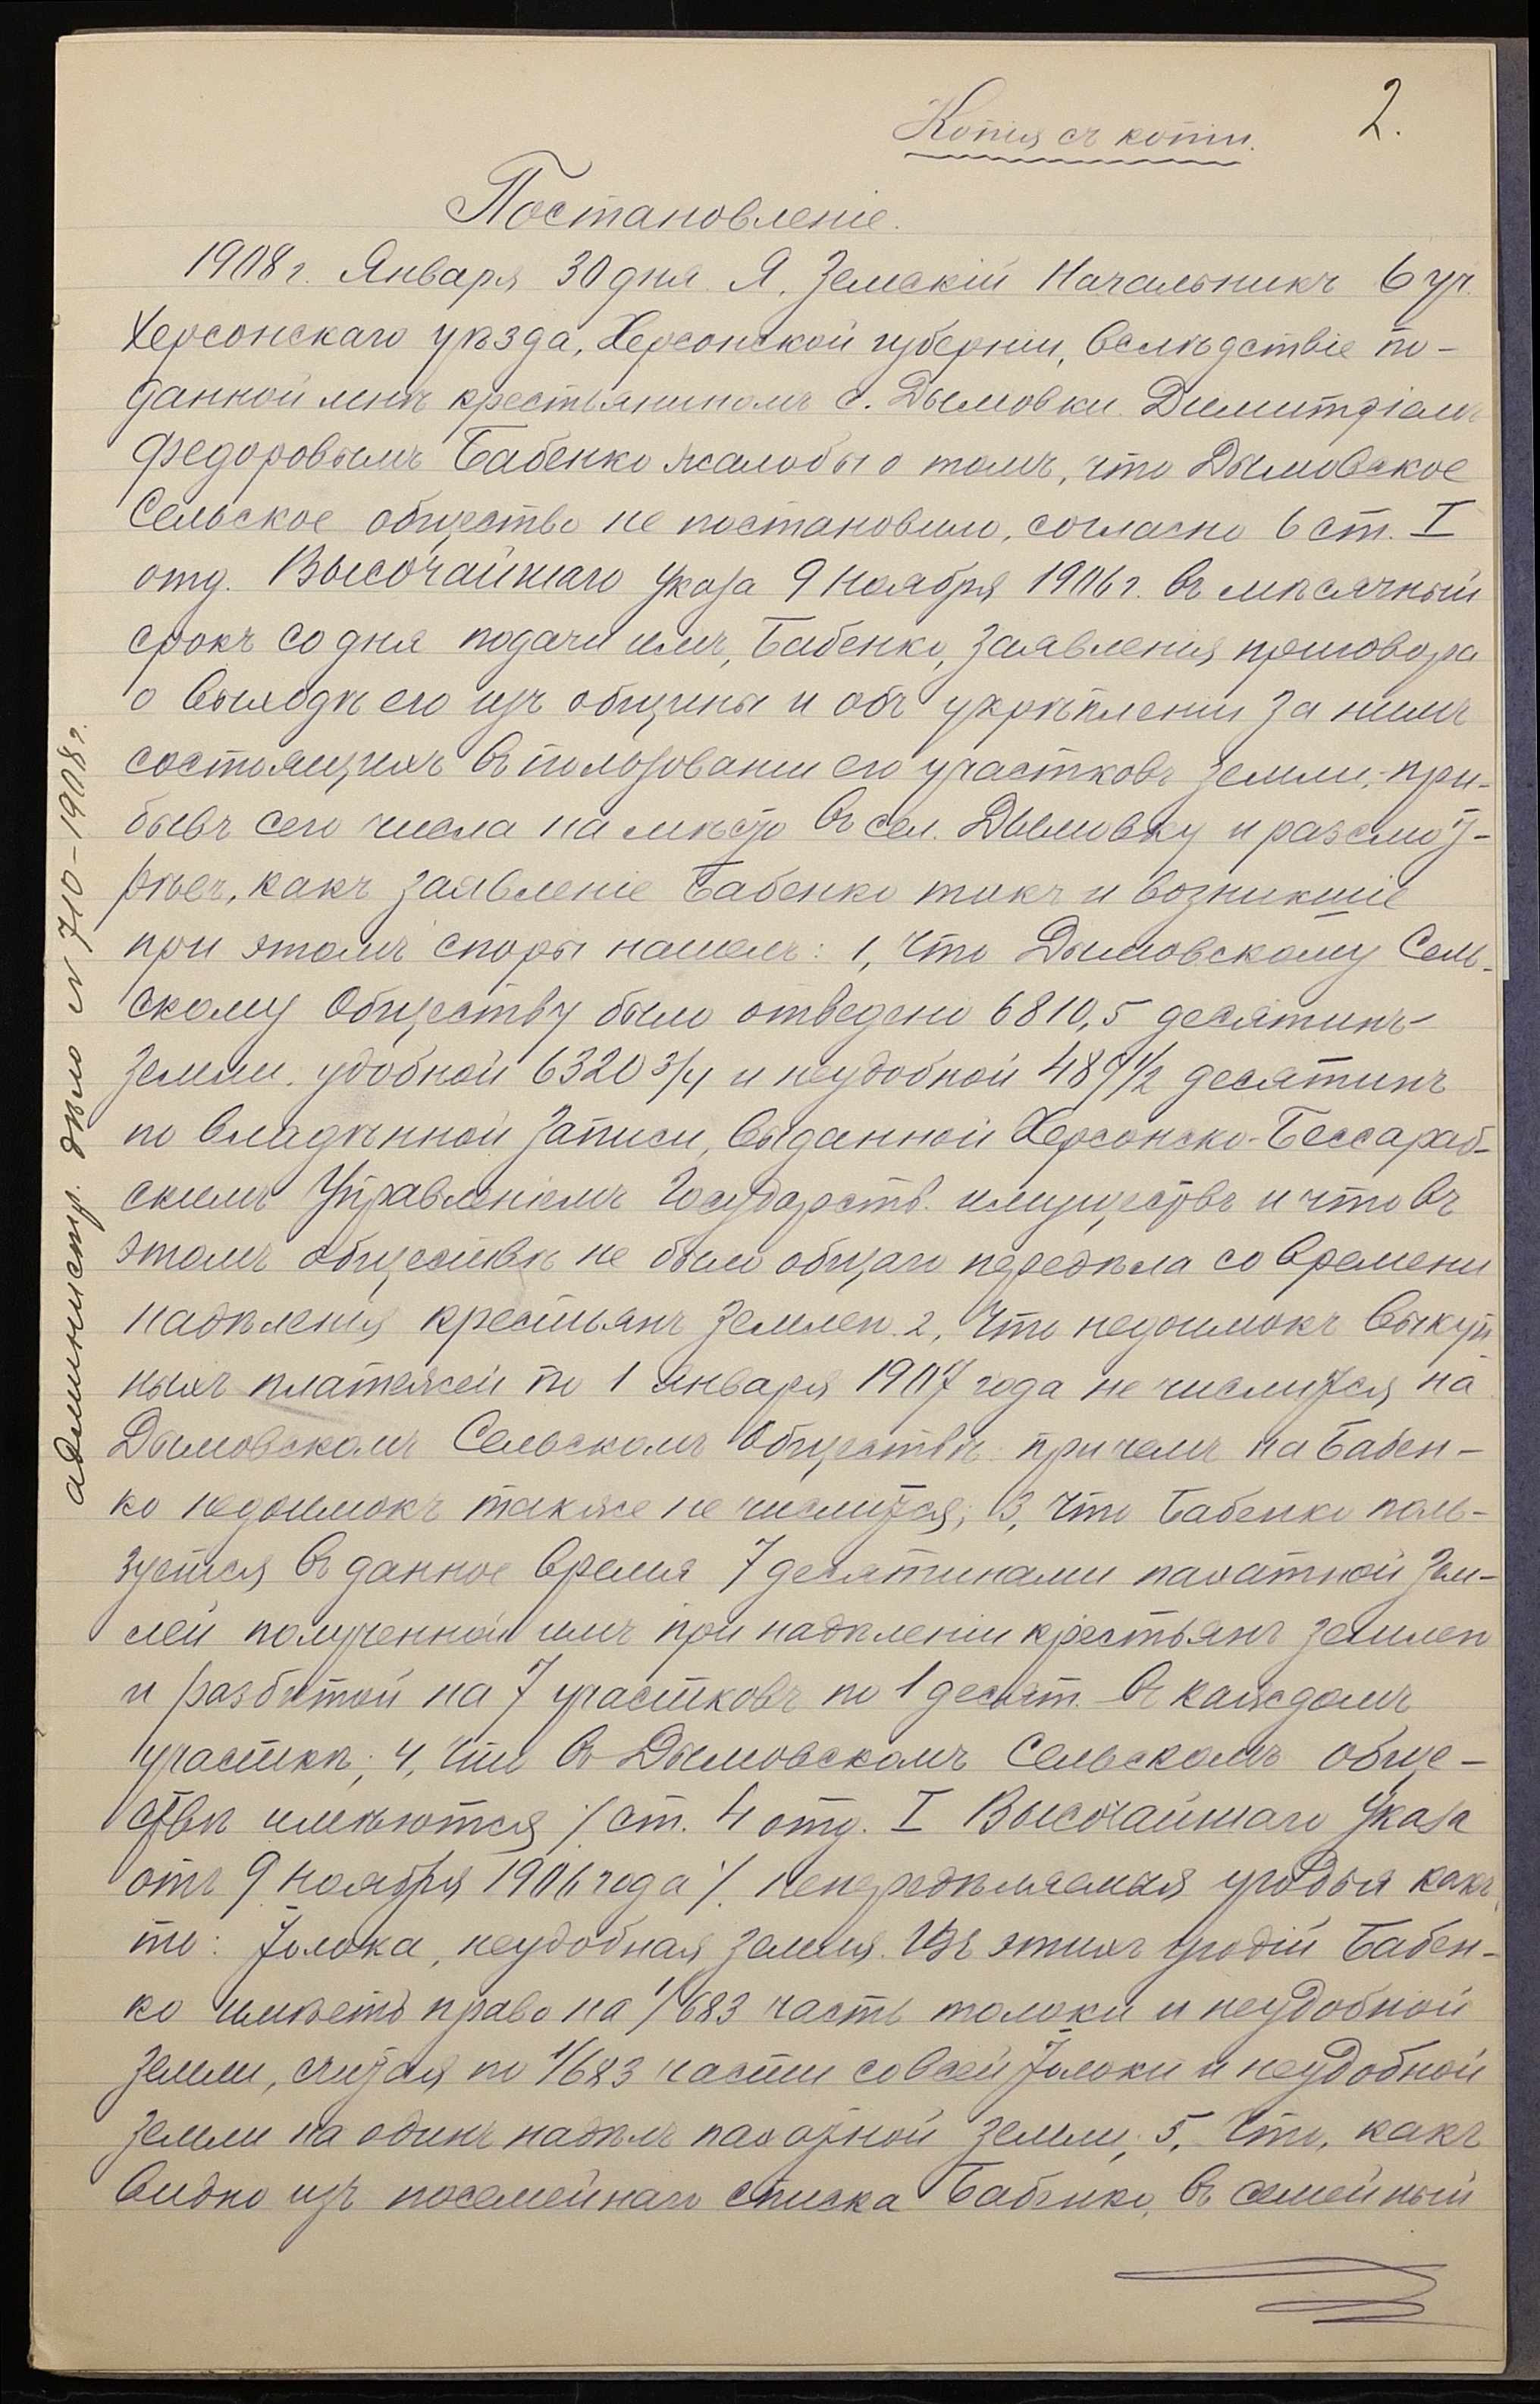 Копія съ копіи.
2.
Постановленіе.
1908 г. Января 30 дня. Я, Земскій Начальникъ 6 уч.
Херсонскаго уѣзда, Херсонской губерніи, вслѣдствіе по-
данной мнѣ крестьяниномъ с. Дымовки Димитріемъ
Федоровымъ Бабенко жалобы о томъ, что Дымовское
Сельское общество не постановило, согласно 6 ст. I
отд. Высочайшаго Указа 9 Ноября 1906 г. въ мѣсячный
срокъ со дня подачи имъ, Бабенко, заявленія, приговора
о выходѣ его изъ общины и объ укрѣпленіи за нимъ
состоящихъ въ пользованіи его участковъ земли, при-
бывъ сего числа на мѣсто въ сел. Дымовку и разсмот-
рѣвъ, какъ заявленіе Бабенко такъ и возникшіе
при этомъ споры нашелъ: 1, Что Дымовскому Сель-
скому Обществу было отведено 6810,5 десятинъ
земли. удобной 6320 3/4 и неудобной 489 1/2 десятинъ
по владѣнной записи, выданной Херсонско-Бессараб-
скимъ Управленіемъ Государств. имуществъ и что въ
этомъ обществѣ не было общаго передѣла со времени
надѣленія крестьянъ землею. 2, Что недоимокъ выкуп-
ныхъ платежей по 1 Января 1907 года не числится на
Дымовскомъ Сельскомъ Обществѣ причемъ на Бабен-
ко недоимокъ также не числится; 3, Что Бабенко поль-
зуется въ данное время 7 десятинами пахатной зем-
лей полученной имъ при надѣленіи крестьянъ землею
и разбитой на 7 участковъ по 1 десят. въ каждомъ
участкѣ; 4, Что въ Дымовскомъ Сельскомъ обще-
ствѣ имѣются /ст. 4 отд. I Высочайшаго Указа
отъ 9 Ноября 1906 года/. непередѣляемыя угодья какъ
то: Толока, неудобная земля. Изъ этихъ угодій Бабен-
ко имѣетъ право на 1/683 часть толоки и неудобной
земли, считая по 1/683 части со всей толоки и неудобной
земли на одинъ надѣлъ пахотной земли; 5, Что, какъ
видно изъ посемейнаго списка Бабенко, въ семейный
административ. дѣло № 710-1908 г.